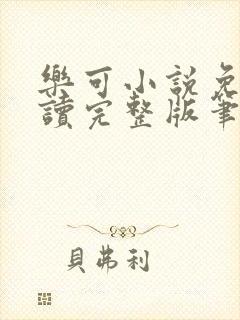 樂可小說免
讀完整版筆
貝弗利